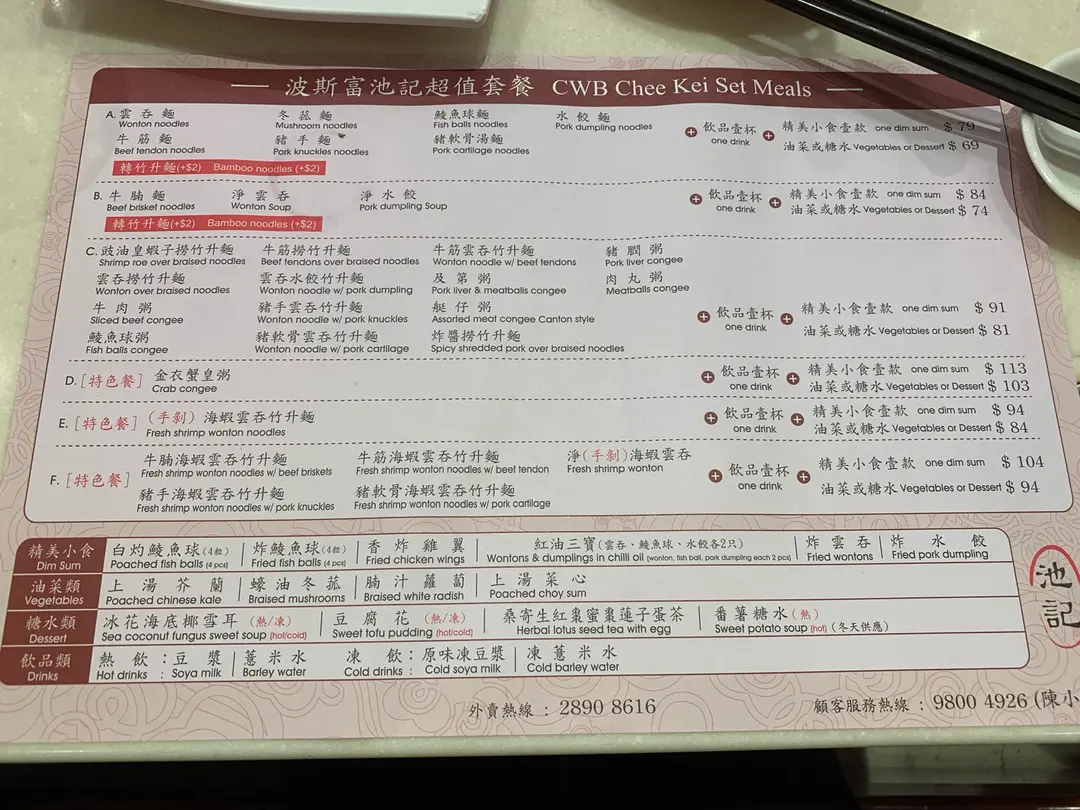 波斯富池記超值套餐 CWB Chee Kei Set Meals
A. 雲吞麵 冬菇麵 鯪魚球麵 水餃麵
Wonton noodles Mushroom noodles Fish balls noodles Pork dumpling noodles
飲品壹杯 精美小食壹款 one dim sum $ 79
牛筋麵 豬手麵 豬軟骨湯麵
Beef tendon noodles Pork knuckles noodles Pork cartilage noodles
one drink 油菜或糖水 Vegetables or Dessert $ 69
轉竹升麵(+$2) Bamboo noodles (+$2)
B. 牛腩麵 淨雲吞 淨水餃
Beef brisket noodles Wonton Soup Pork dumpling Soup
飲品壹杯 精美小食壹款 one dim sum $ 84
one drink 油菜或糖水 Vegetables or Dessert $ 74
轉竹升麵(+$2) Bamboo noodles (+$2)
C. 豉油皇蝦子撈竹升麵 牛筋撈竹升麵 牛筋雲吞竹升麵 豬膶粥
Shrimp roe over braised noodles Beef tendons over braised noodles Wonton noodle w/ beef tendons Pork liver congee
雲吞撈竹升麵 雲吞水餃竹升麵 及第粥 肉丸粥
Wonton over braised noodles Wonton noodle w/ pork dumpling Pork liver & meatballs congee Meatballs congee
牛肉粥 豬手雲吞竹升麵 艇仔粥
Sliced beef congee Wonton noodle w/ pork knuckles Assorted meat congee Canton style
飲品壹杯 精美小食壹款 one dim sum $ 91
鯪魚球粥 豬軟骨雲吞竹升麵 炸醬撈竹升麵
Fish balls congee Wonton noodle w/ pork cartilage Spicy shredded pork over braised noodles
one drink 油菜或糖水 Vegetables or Dessert $ 81
D. [特色餐] 金衣蟹皇粥 飲品壹杯 精美小食壹款 one dim sum $ 113
Crab congee one drink 油菜或糖水 Vegetables or Dessert $ 103
E. [特色餐] (手剝) 海蝦雲吞竹升麵 飲品壹杯 精美小食壹款 one dim sum $ 94
Fresh shrimp wonton noodles one drink 油菜或糖水 Vegetables or Dessert $ 84
F. [特色餐] 牛腩海蝦雲吞竹升麵 牛筋海蝦雲吞竹升麵 淨(手剝)海蝦雲吞
Fresh shrimp wonton noodles w/ beef briskets Fresh shrimp wonton noodles w/ beef tendon Fresh shrimp wonton
飲品壹杯 精美小食壹款 one dim sum $ 104
豬手海蝦雲吞竹升麵 豬軟骨海蝦雲吞竹升麵
Fresh shrimp wonton noodles w/ pork knuckles Fresh shrimp wonton noodles w/ pork cartilage
one drink 油菜或糖水 Vegetables or Dessert $ 94
精美小食 白灼鯪魚球(4粒) 炸鯪魚球(4粒) 香炸雞翼 紅油三寶(雲吞、鯪魚球、水餃各2只) 炸雲吞 炸水餃
Dim Sum Poached fish balls (4 pcs) Fried fish balls (4 pcs) Fried chicken wings Wontons & dumplings in chilli oil (wonton, fish ball, pork dumpling each 2 pcs) Fried wontons Fried pork dumpling
油菜類 上湯芥蘭 蠔油冬菇 腩汁蘿蔔 上湯菜心
Vegetables Poached chinese kale Braised mushrooms Braised white radish Poached choy sum
糖水類 冰花海底椰雪耳 (熱/凍) 豆腐花 (熱/凍) 桑寄生紅棗蜜棗蓮子蛋茶 番薯糖水 (熱)
Dessert Sea coconut fungus sweet soup (hot/cold) Sweet tofu pudding (hot/cold) Herbal lotus seed tea with egg Sweet potato soup (hot) (冬天供應)
飲品類 熱飲:豆漿 薏米水 凍飲:原味凍豆漿 凍薏米水
Drinks Hot drinks : Soya milk Barley water Cold drinks : Cold soya milk Cold barley water
池
記
外賣熱線 : 2890 8616
顧客服務熱線 : 9800 4926 (陳小